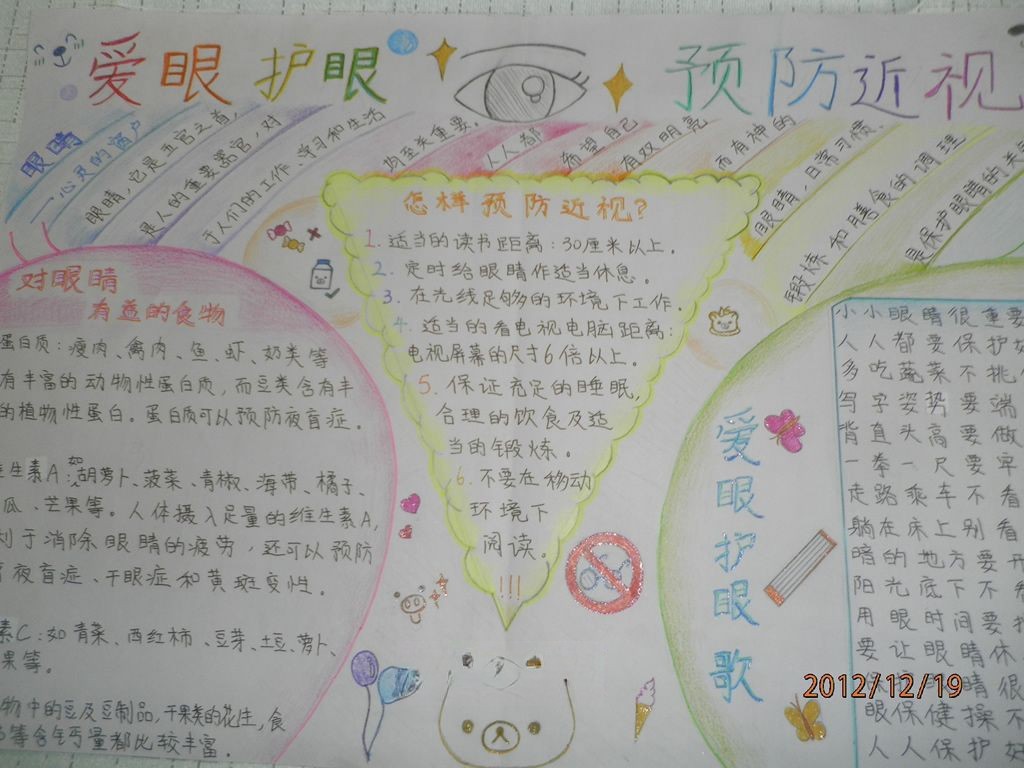 爱眼护眼 预防近视
眼睛
——心灵的窗户
眼睛,它是五官之首,
是人的重要器官,对
于人们的工作、学习和生活
均至关重要。
人人都
希望自己
有双明亮
而有神的
眼睛,日常习惯、
锻炼和用膳食的调理
是保护眼睛的
对眼睛
有益的食物
蛋白质:瘦肉、禽肉、鱼、虾、奶类等
有丰富的动物性蛋白质,而豆类含有丰
的植物性蛋白。蛋白质可以预防夜盲症。
生素A:如胡萝卜、菠菜、青椒、海带、橘子、
瓜、芒果等。人体摄入足量的维生素A,
利于消除眼睛的疲劳,还可以预防
夜盲症、干眼症和黄斑变性。
素C:如青菜、西红柿、豆芽、土豆、萝卜、
果等。
物中的豆及豆制品,干果类的花生,食
等含钙量都比较丰富。
怎样预防近视?
1.适当的读书距离:30厘米以上。
2.定时给眼睛作适当休息。
3.在光线足够的环境下工作。
4.适当的看电视电脑距离:
电视屏幕的尺寸6倍以上。
5.保证充足的睡眠,
合理的饮食及适
当的锻炼。
6.不要在移动
环境下
阅读。
!!!
爱眼护眼歌
小小眼睛很重要
人人都要保护好
多吃蔬菜不挑
写字姿势要端
背直头高要做
一拳一尺要牢
走路乘车不看
躺在床上别看
暗的地方要开
阳光底下不看
用眼时间要
要让眼睛休
保护眼睛很
眼保健操不
人人保护好
2012/12/19